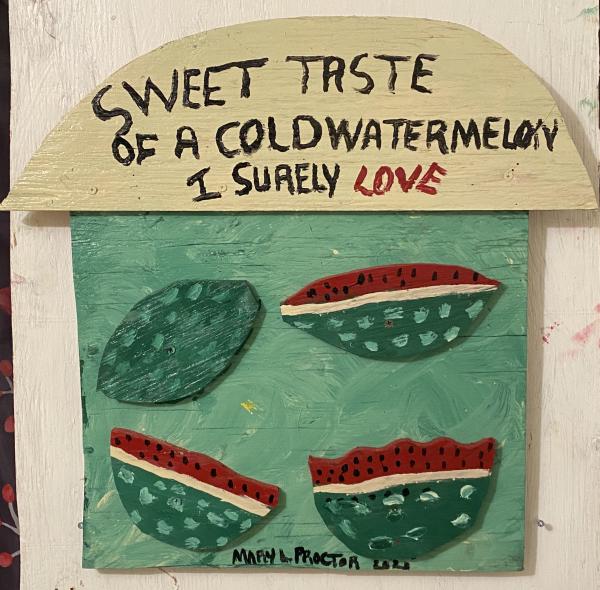 SWEET TASTE
OF A COLD WATERMELON
I SURELY LOVE
MARY L. PROCTOR